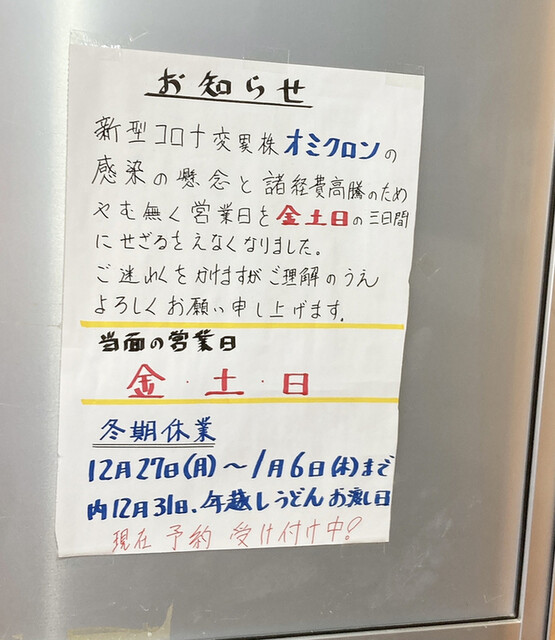 お知らせ
新型コロナ変異株オミクロンの
感染の懸念と諸経費高騰のため
やむ無く営業日を金土日の三日間
にせざるをえなくなりました。
ご迷わくをかけますがご理解のうえ
よろしくお願い申し上げます.
当面の営業日
金・土・日
冬期休業
12月27日(月)〜1月6日(木)まで
内12月31日、年越しうどんお渡し日
現在 予約 受け付け中!